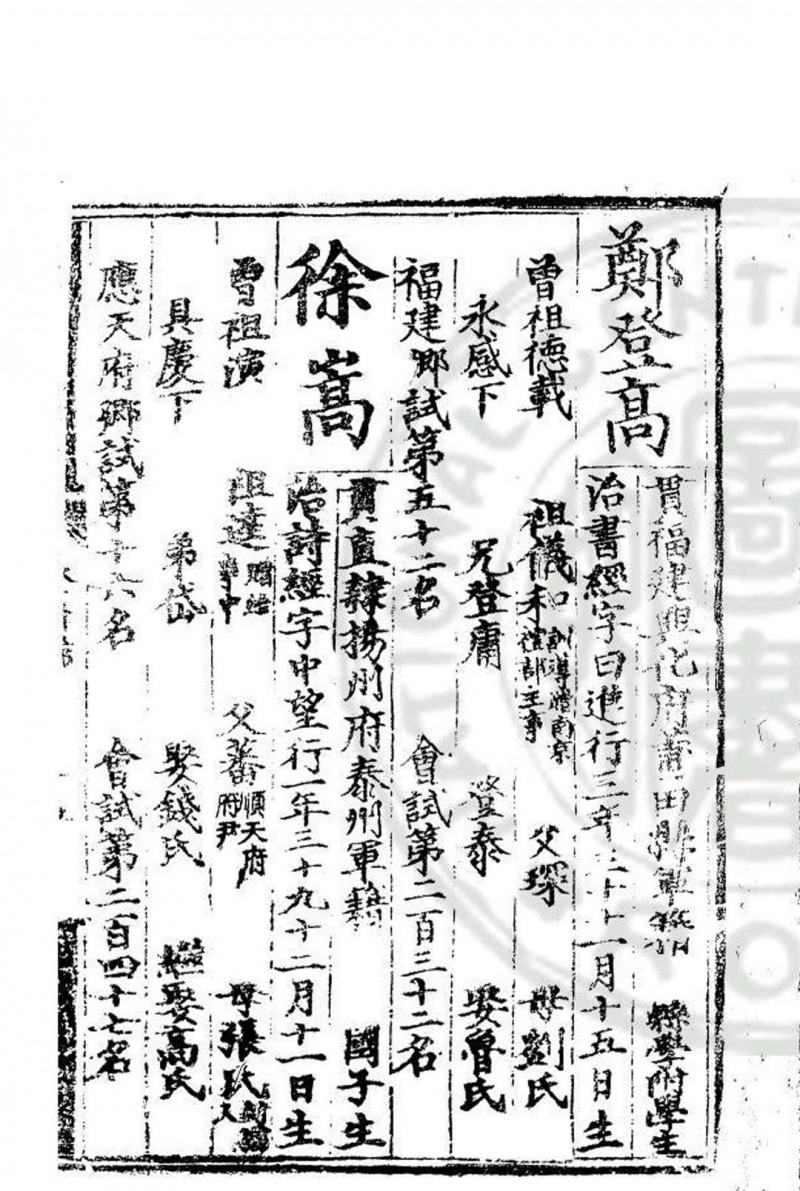 鄭登高
貫福建興化府莆田縣軍籍 縣學附學生
治書經字曰進行三年三十一月十五日生
曾祖德載 祖儀和訓導贈南京禮部主事 父琛 母劉氏
永感下 兄登庸 登泰 娶曾氏
福建鄉試第五十二名 會試第二百三十二名
徐嵩
貫直隸揚州府泰州軍籍 國子生
治詩經字中望行一年三十九十二月十一日生
曾祖演 祖達贈給事中 父蕃順天府府尹 母張氏
具慶下 弟岱 娶錢氏 繼娶高氏
應天府鄉試第十六名 會試第二百四十七名